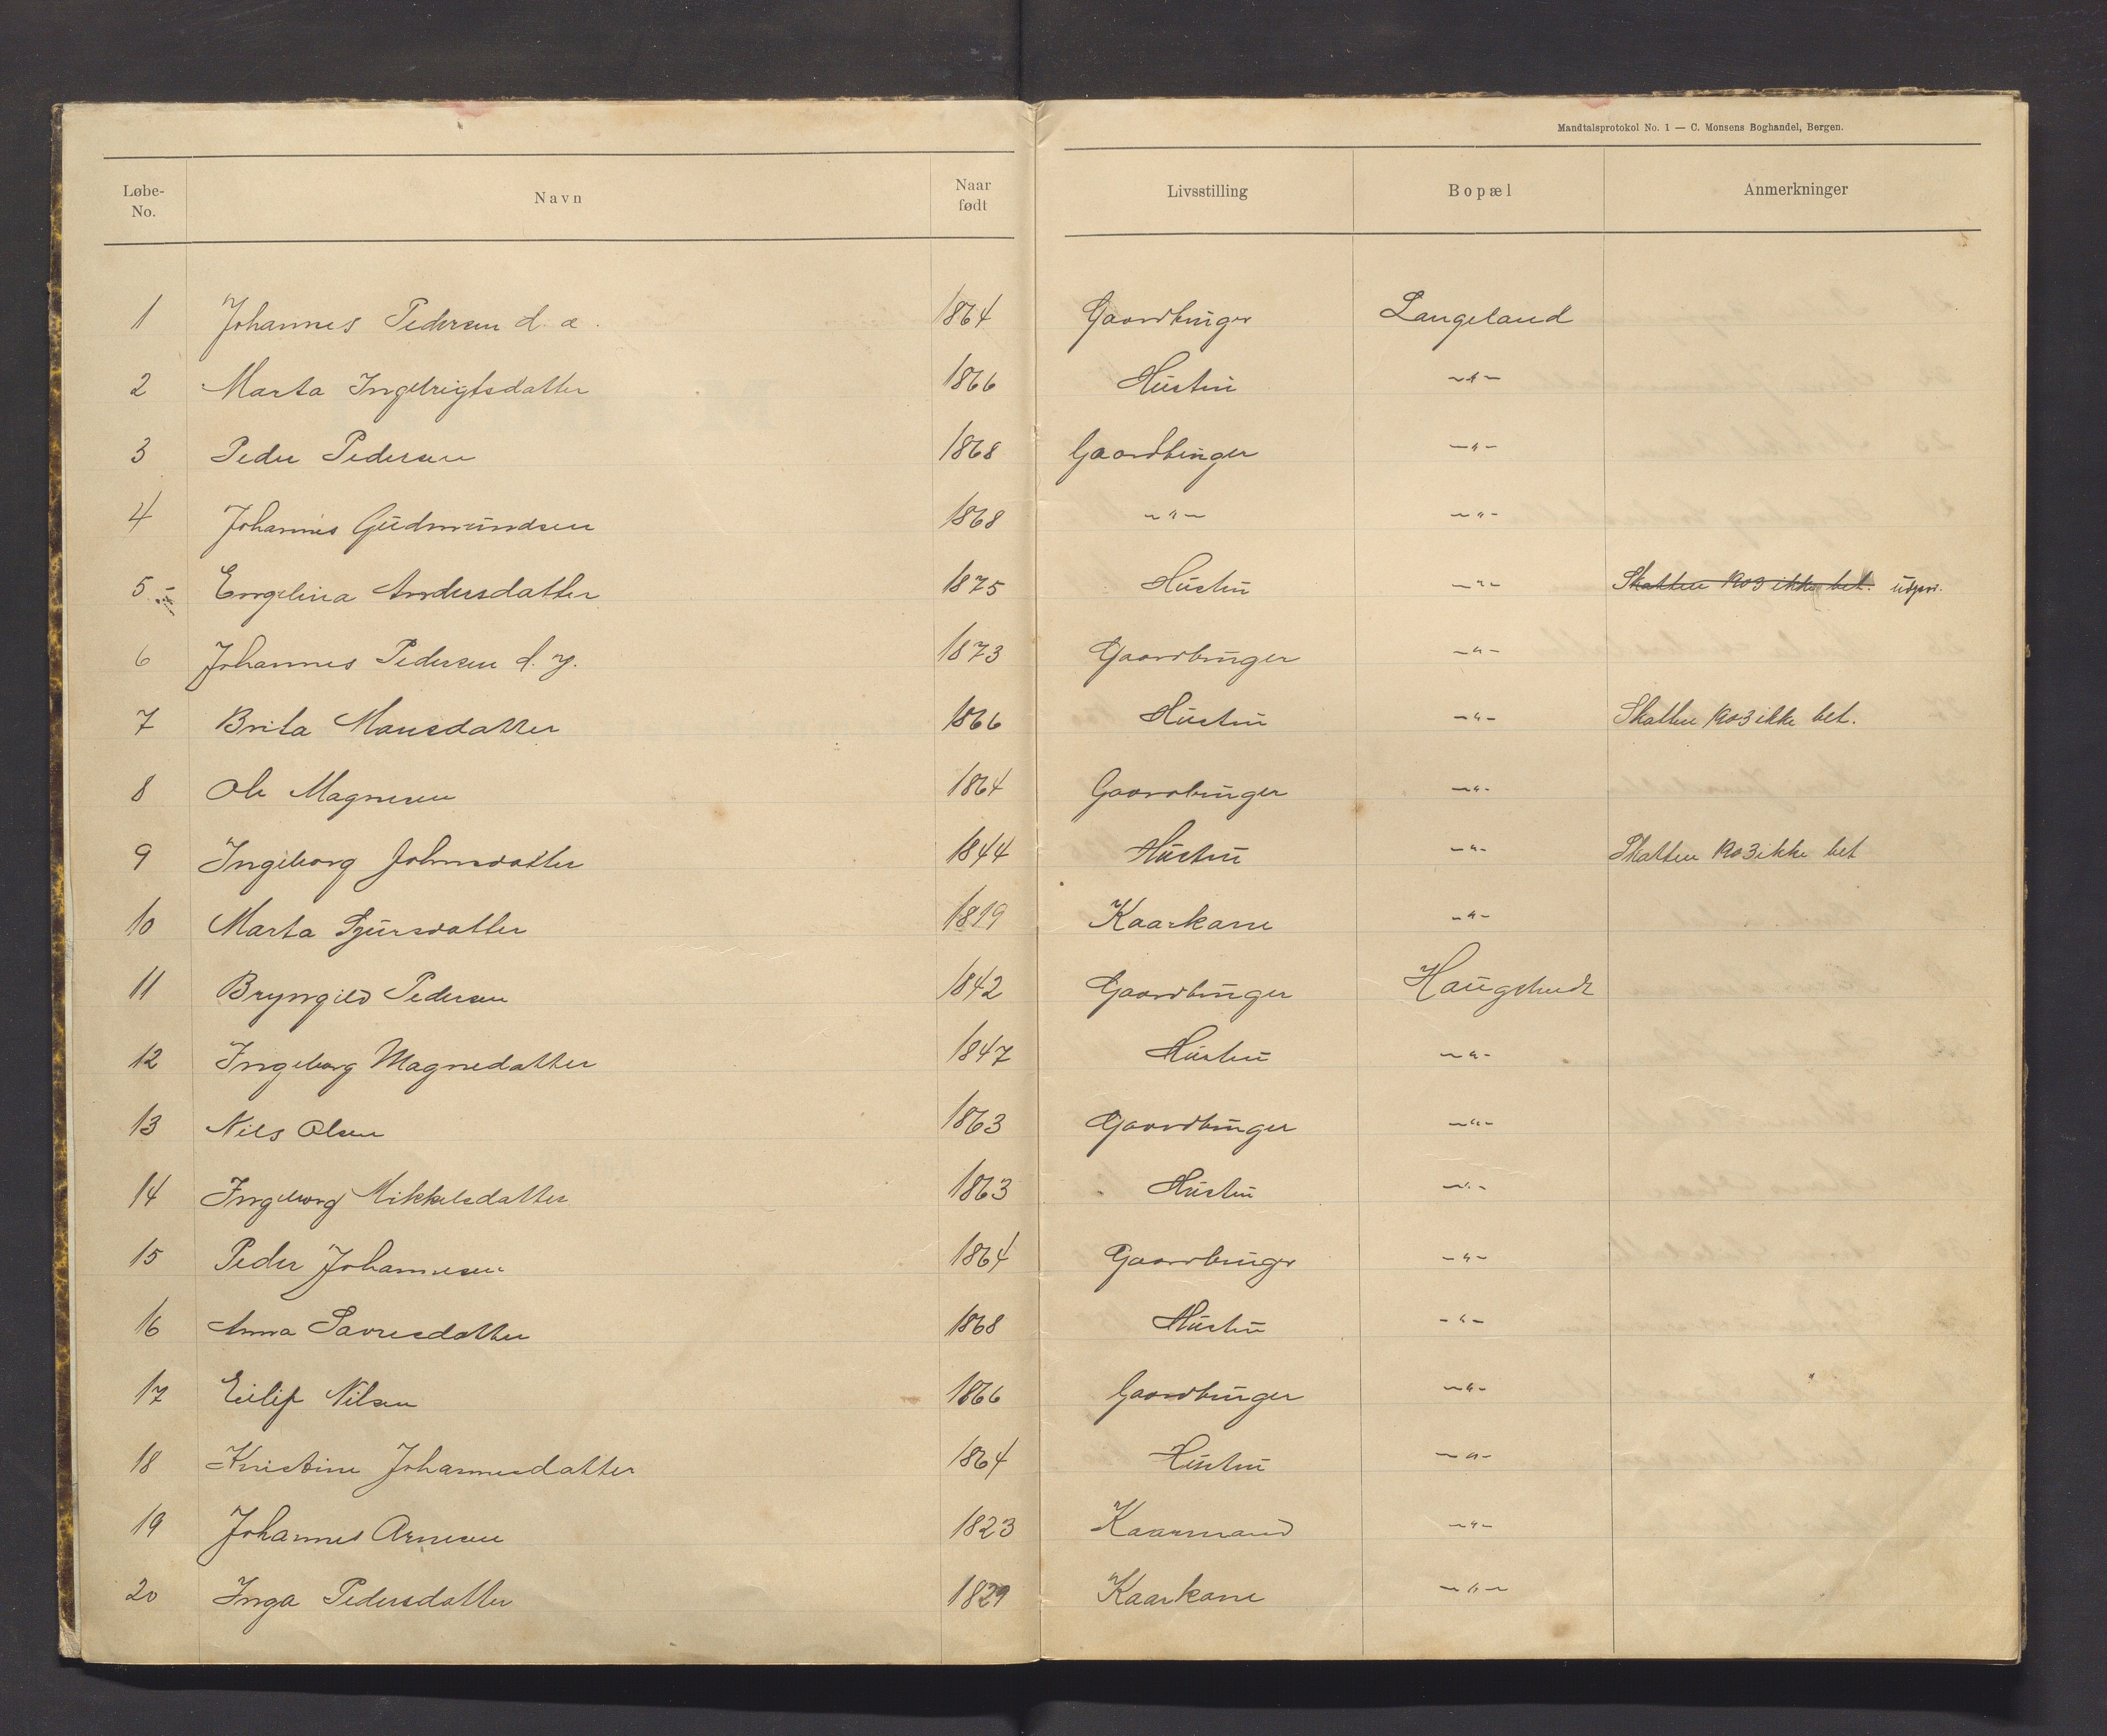 Mandtalsprotokol No. 1 — C. Monsens Boghandel, Bergen.
Løbe-No. Navn Naar født Livsstilling Bopæl Anmerkninger
1 Johannes Pedersen d. æ. 1864 Gaardbruger Langeland
2 Marta Ingebrigtsdatter 1866 Hustru -"-
3 Peder Pedersen 1868 Gaardbruger -"-
4 Johannes Gudmundsen 1868 -"- -"-
5 Engelina Andersdatter 1875 Hustru -"- Skatten 1903 ikke bet.
6 Johannes Pedersen d. y. 1873 Gaardbruger -"-
7 Brita Mansdatter 1866 Hustru -"- Skatten 1903 ikke bet.
8 Ole Magnesen 1864 Gaardbruger -"-
9 Ingeborg Johnsdatter 1844 Hustru -"- Skatten 1903 ikke bet
10 Marta Sjursdatter 1819 Kaarkone -"-
11 Bryngild Pedersen 1842 Gaardbruger
12 Ingeborg Magnedatter 1847 Hustru -"-
13 Nils Olsen 1863 Gaardbruger -"-
14 Ingeborg Mikkelsdatter 1863 Hustru -"-
15 Peder Johannesen 1864 Gaardbruger -"-
16 Anna Davidsdatter 1868 Hustru -"-
17 Eilif Nilsen 1866 Gaardbruger -"-
18 Kristine Johannesdatter 1864 Hustru -"-
19 Johannes Arnesen 1823 Kaarmand -"-
20 Inga Pedersdatter 1829 Kaarkone -"-